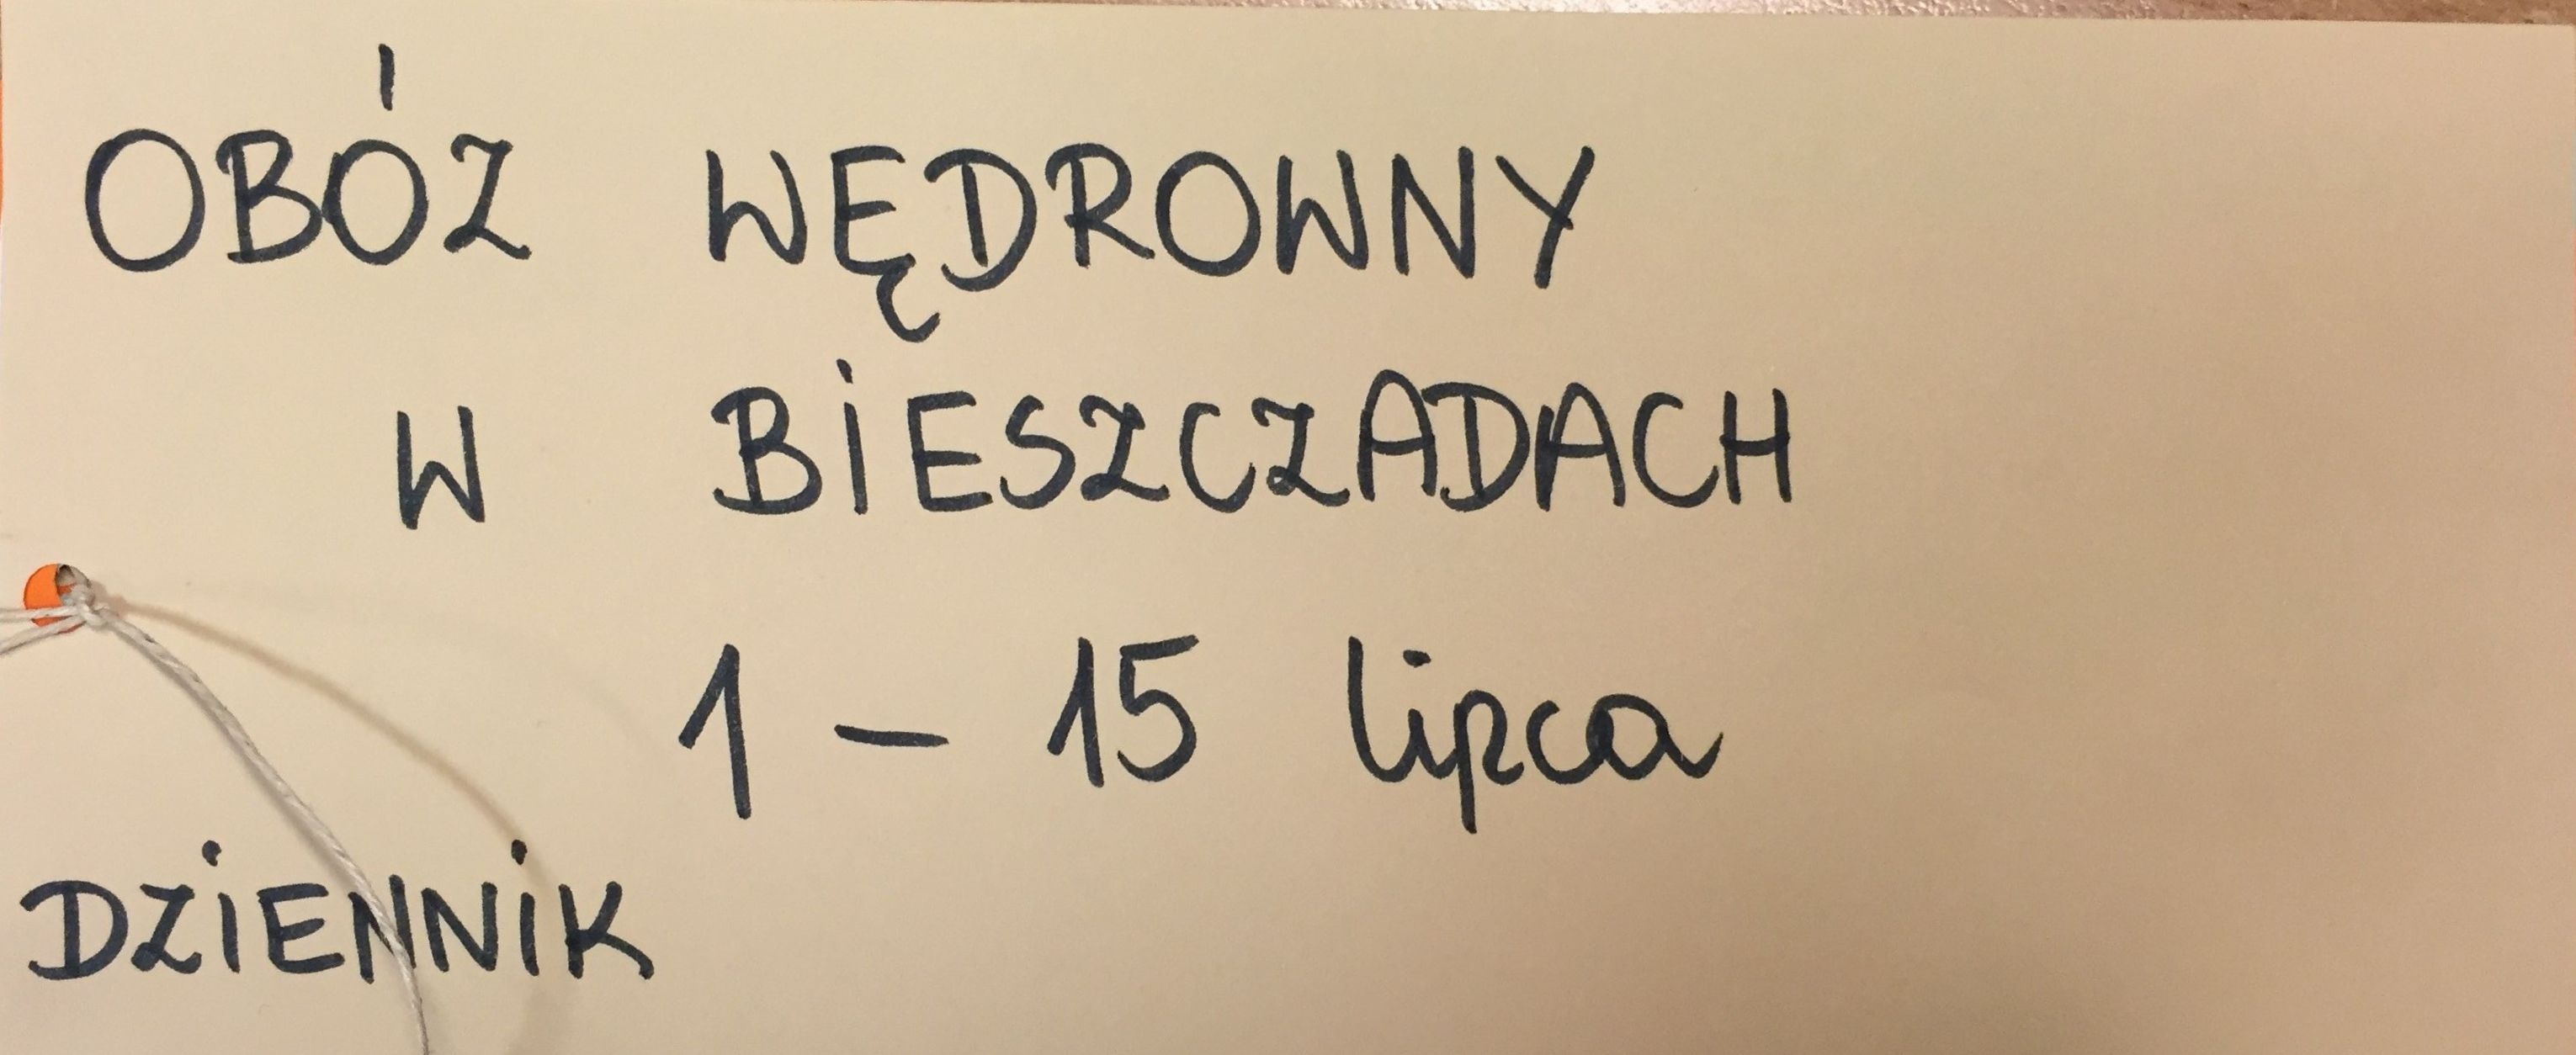 OBÓZ WĘDROWNY
W BiESZCZADACH
1 – 15 lipca
DZiENNiK